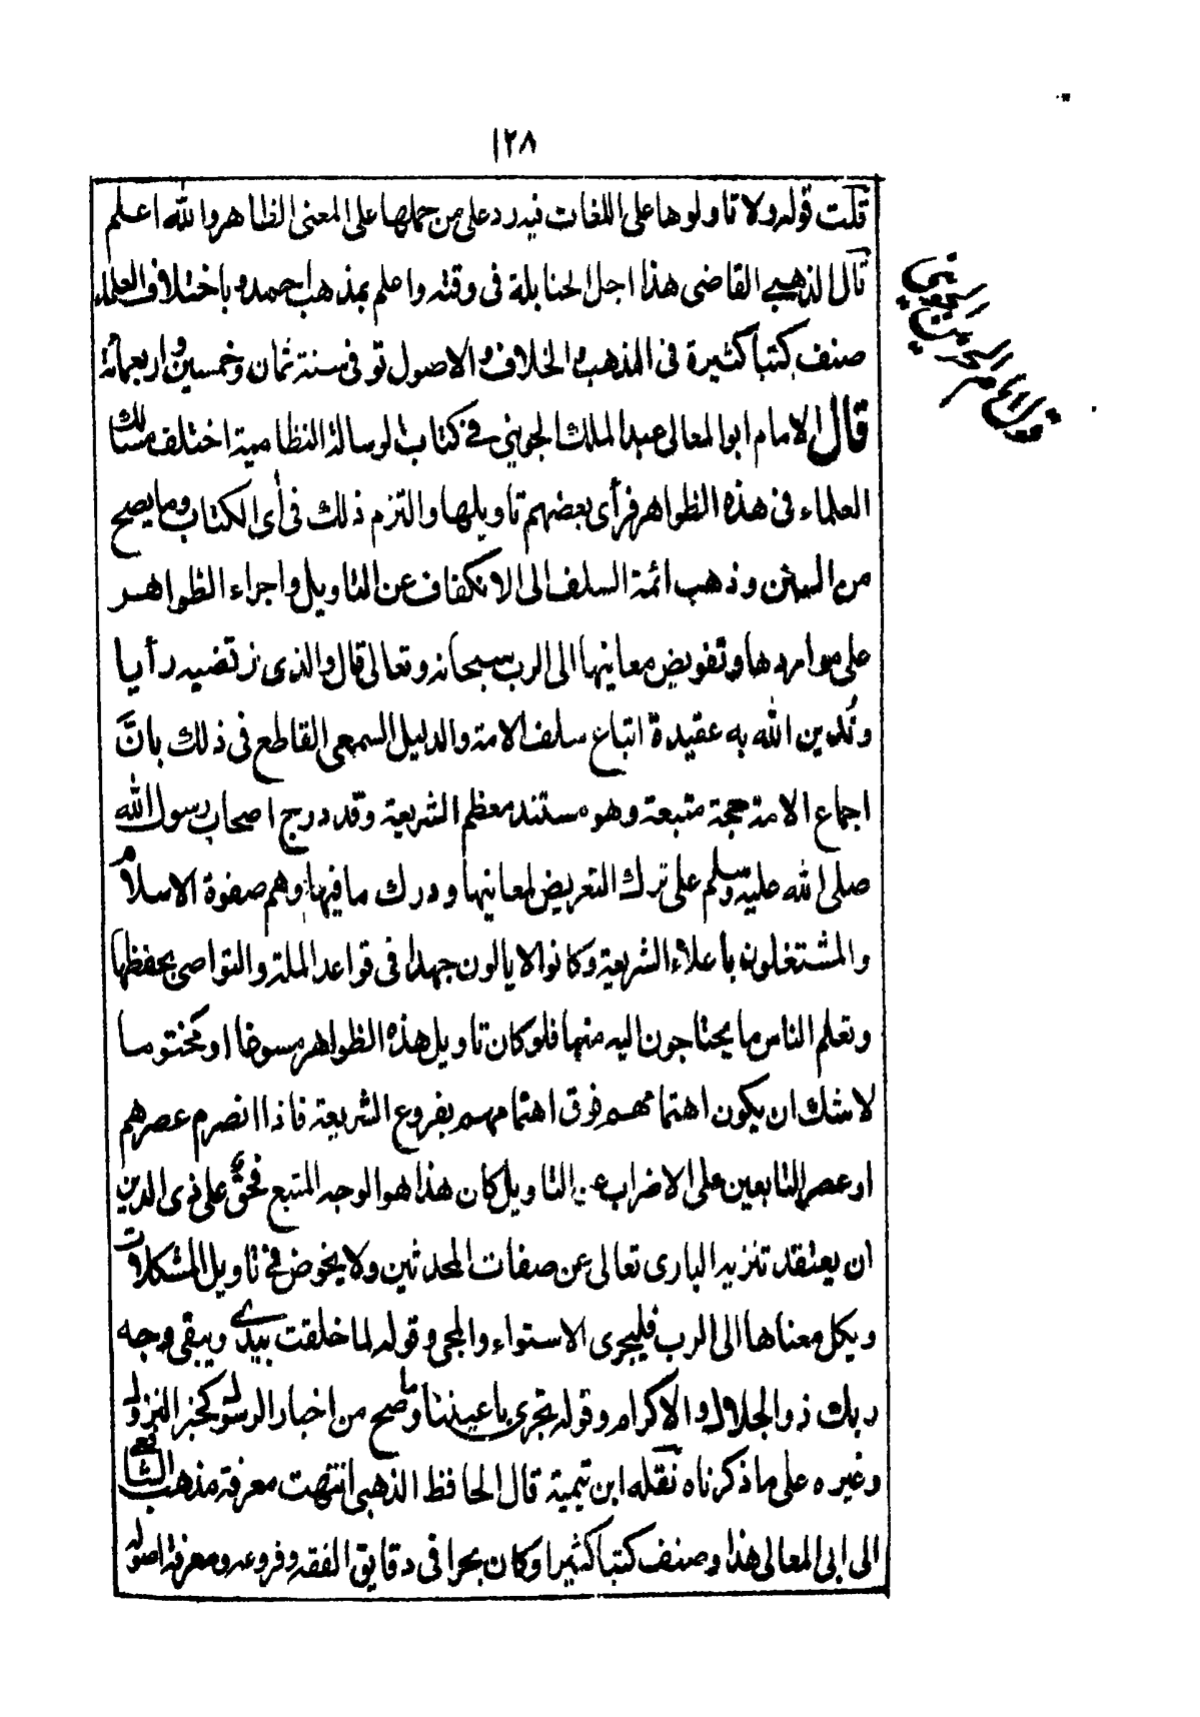 ١٢٨
قلت قوله ولا تاولوها على اللغات فيه رد على من حملها على المعنى الظاهر والله اعلم
قال الذهبي القاضى هذا اجل الحنابلة فى وقته واعلم بمذهب احمد وباختلاف العلماء
صنف كتبا كثيرة فى المذهب والخلاف والاصول توفى سنة ثمان وخمسين واربعمائة
قال الامام ابو المعالى عبد الملك الجويني في كتاب الرسالة النظامية اختلف مسالك
العلماء فى هذه الظواهر فرأى بعضهم تاويلها والتزم ذلك فى أى الكتاب وما يصح
من السنن وذهب ائمة السلف الى الانكفاف عن التاويل واجراء الظواهر
على مواردها وتفويض معانيها الى الرب سبحانه وتعالى قال والذى نرتضيه رأيا
ونُدين الله به عقيدة اتباع سلف الامة والدليل السمعى القاطع فى ذلك بانَّ
اجماع الامة حجة متبعة وهو مستند معظم الشريعة وقد درج اصحاب رسول الله
صلى الله عليه وسلم على ترك التعريض لمعانيها ودرك ما فيها وهم صفوة الاسلام
والمشتغلون باعلاء الشريعة وكانوا لا يالون جهدا فى قواعد الملة والتواصى بحفظها
وتعلم الناس ما يحتاجون اليه منها فلو كان تاويل هذه الظواهر مسوغا او محتوما
لا شك ان يكون اهتمامهم فوق اهتمامهم بفروع الشريعة فاذا انصرم عصرهم
او عصر التابعين على الاضراب عن التاويل كان هذا هو الوجه المتبع فحقٌّ على ذى الدين
ان يعتقد تنزيه البارى تعالى عن صفات المحدثين ولا يخوض في تاويل المشكلات
ويكل معناها الى الرب فليجرى الاستواء والمجى وقوله لما خلقت بيدي ويبقى وجه
ربك ذو الجلال والاكرام وقوله تجرى باعيننا وما صح من اخبار الرسول كخبر النزول
وغيره على ما ذكرناه نقله ابن تيمية قال الحافظ الذهبى انتهت معرفة مذهب الشافعى
الى ابى المعالى هذا وصنف كتبا كثيرا وكان بحرا فى دقايق الفقه وفروعه ومعرفة اصوله
قول امام الحرمين الجويني